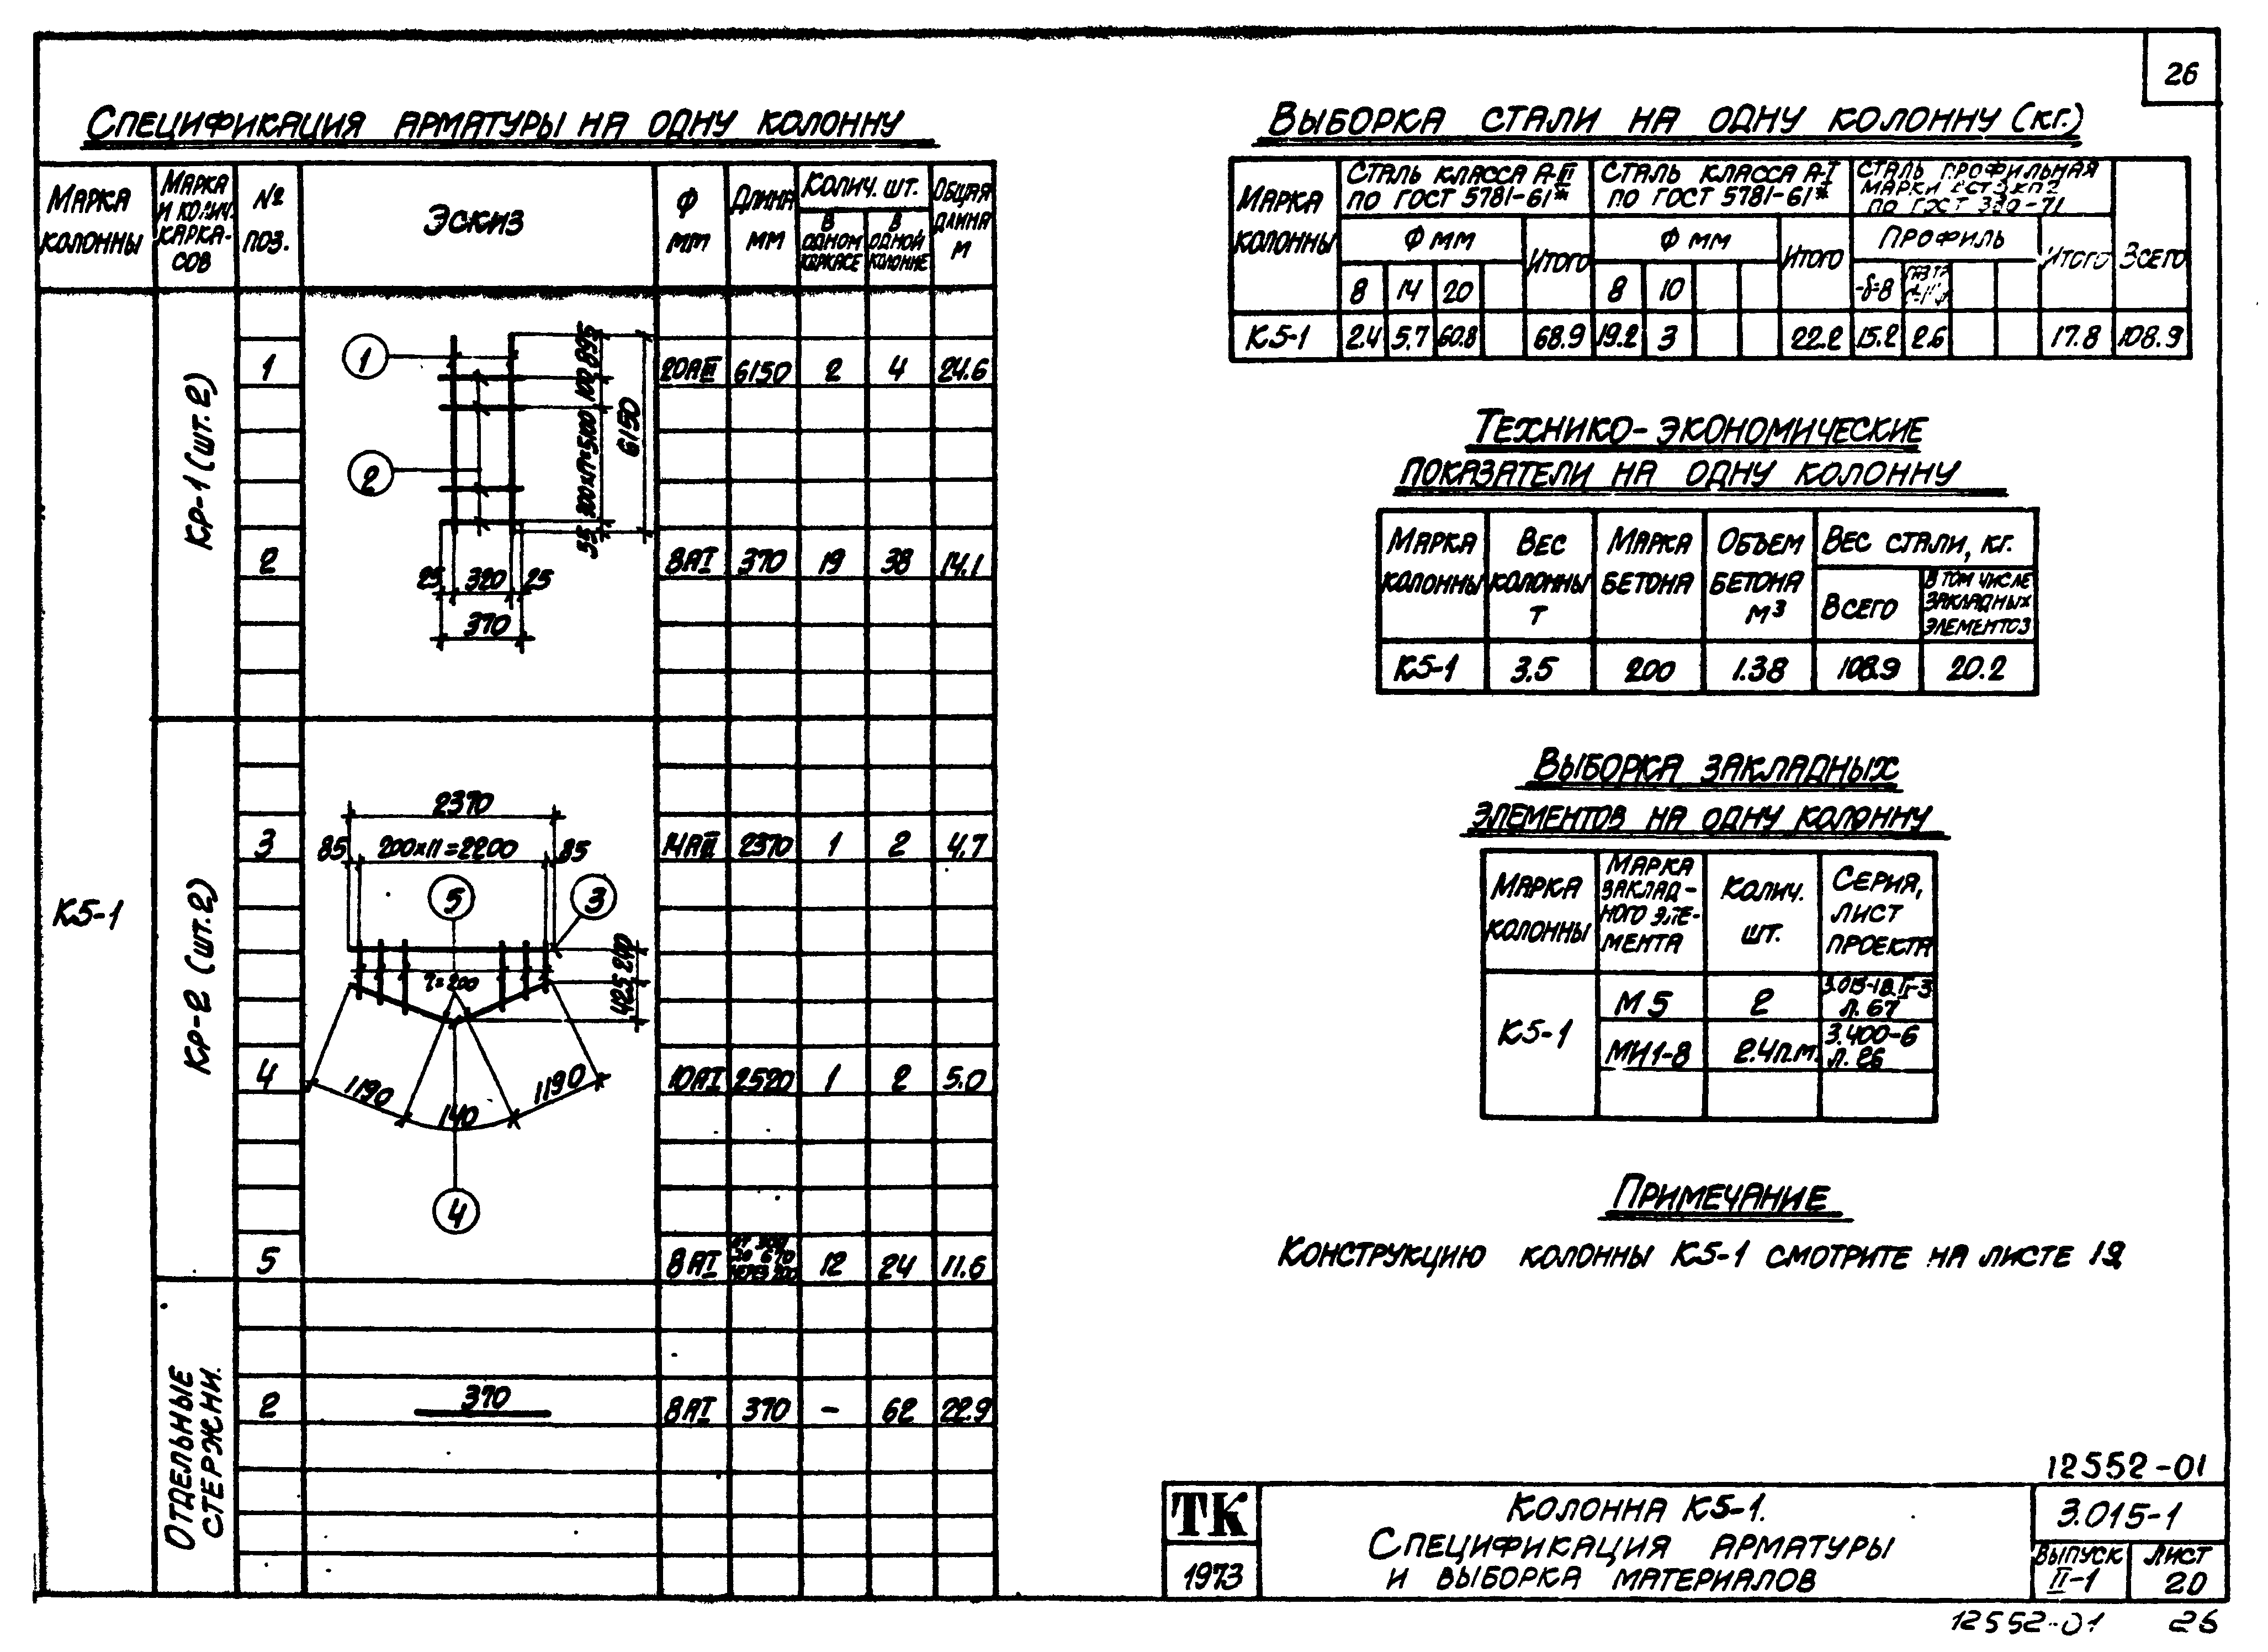 26
Спецификация арматуры на одну колонну
Марка колонны
Марка и колич. карка-сов
№ поз.
Эскиз
Ф мм
Длина мм
Колич. шт.
в одном каркасе
в одной колонне
Общая длина м
К5-1
КР-1 (шт. 2)
1 20АIII 6150 2 4 24.6
2 8АI 370 19 38 14.1
1
2
895
100
300х17=5100
55
6150
25 320 25
370
КР-2 (шт. 2)
3 14АIII 2370 1 2 4.7
4 10АI 2520 1 2 5.0
5 8АI до 670 через 12 24 11.6
2370
85 200х11=2200 85
5
3
240
425
=200
1190 140 1190
4
Отдельные стержни.
2 370 8АI 370 - 62 22.9
Выборка стали на одну колонну (кг.)
Марка колонны
Сталь класса А-III по ГОСТ 5781-61*
Сталь класса А-I по ГОСТ 5781-61*
Сталь профильная марки по ГОСТ 380-71
Ф мм
Итого
Ф мм
Итого
Профиль
Итого
Всего
8 14 20
8 10
-δ=8
К5-1 2.4 5.7 60.8 68.9 19.2 3 22.2 15.2 2.6 17.8 108.9
Технико-экономические
показатели на одну колонну
Марка колонны
Вес колонны т
Марка бетона
Объем бетона м³
Вес стали, кг.
Всего
В том числе закладных элементов
К5-1 3.5 200 1.38 108.9 20.2
Выборка закладных
элементов на одну колонну
Марка колонны
Марка заклад-ного эле-мента
Колич. шт.
Серия, лист проекта
К5-1
М5 2 л. 67
МИ1-8 2.4п.м. 3.400-6 л. 26
Примечание
Конструкцию колонны К5-1 смотрите на листе 19
12552-01
ТК
1973
Колонна К5-1.
Спецификация арматуры
и выборка материалов
3.015-1
Выпуск II-1
Лист 20
12552-01 26